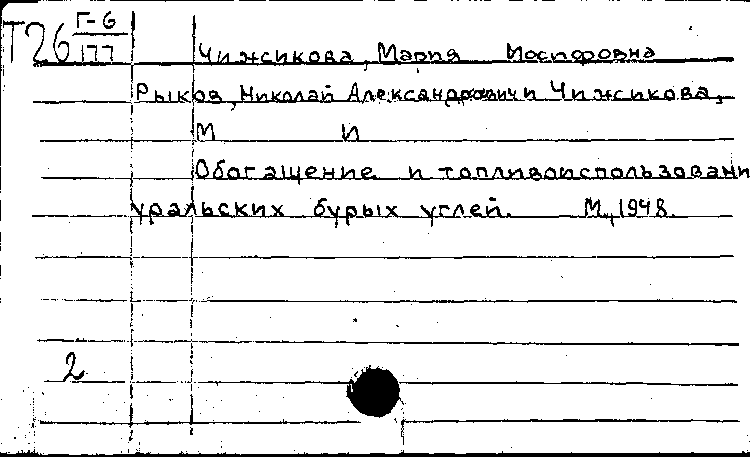 Т26 Г-6
177
Чижсикова, Мария Иосифовна
Рыков, Николай Александрович и Чижсикова,
М И
Обогащение и топливоиспользовани
уральских бурых углей. М., 1948.
2